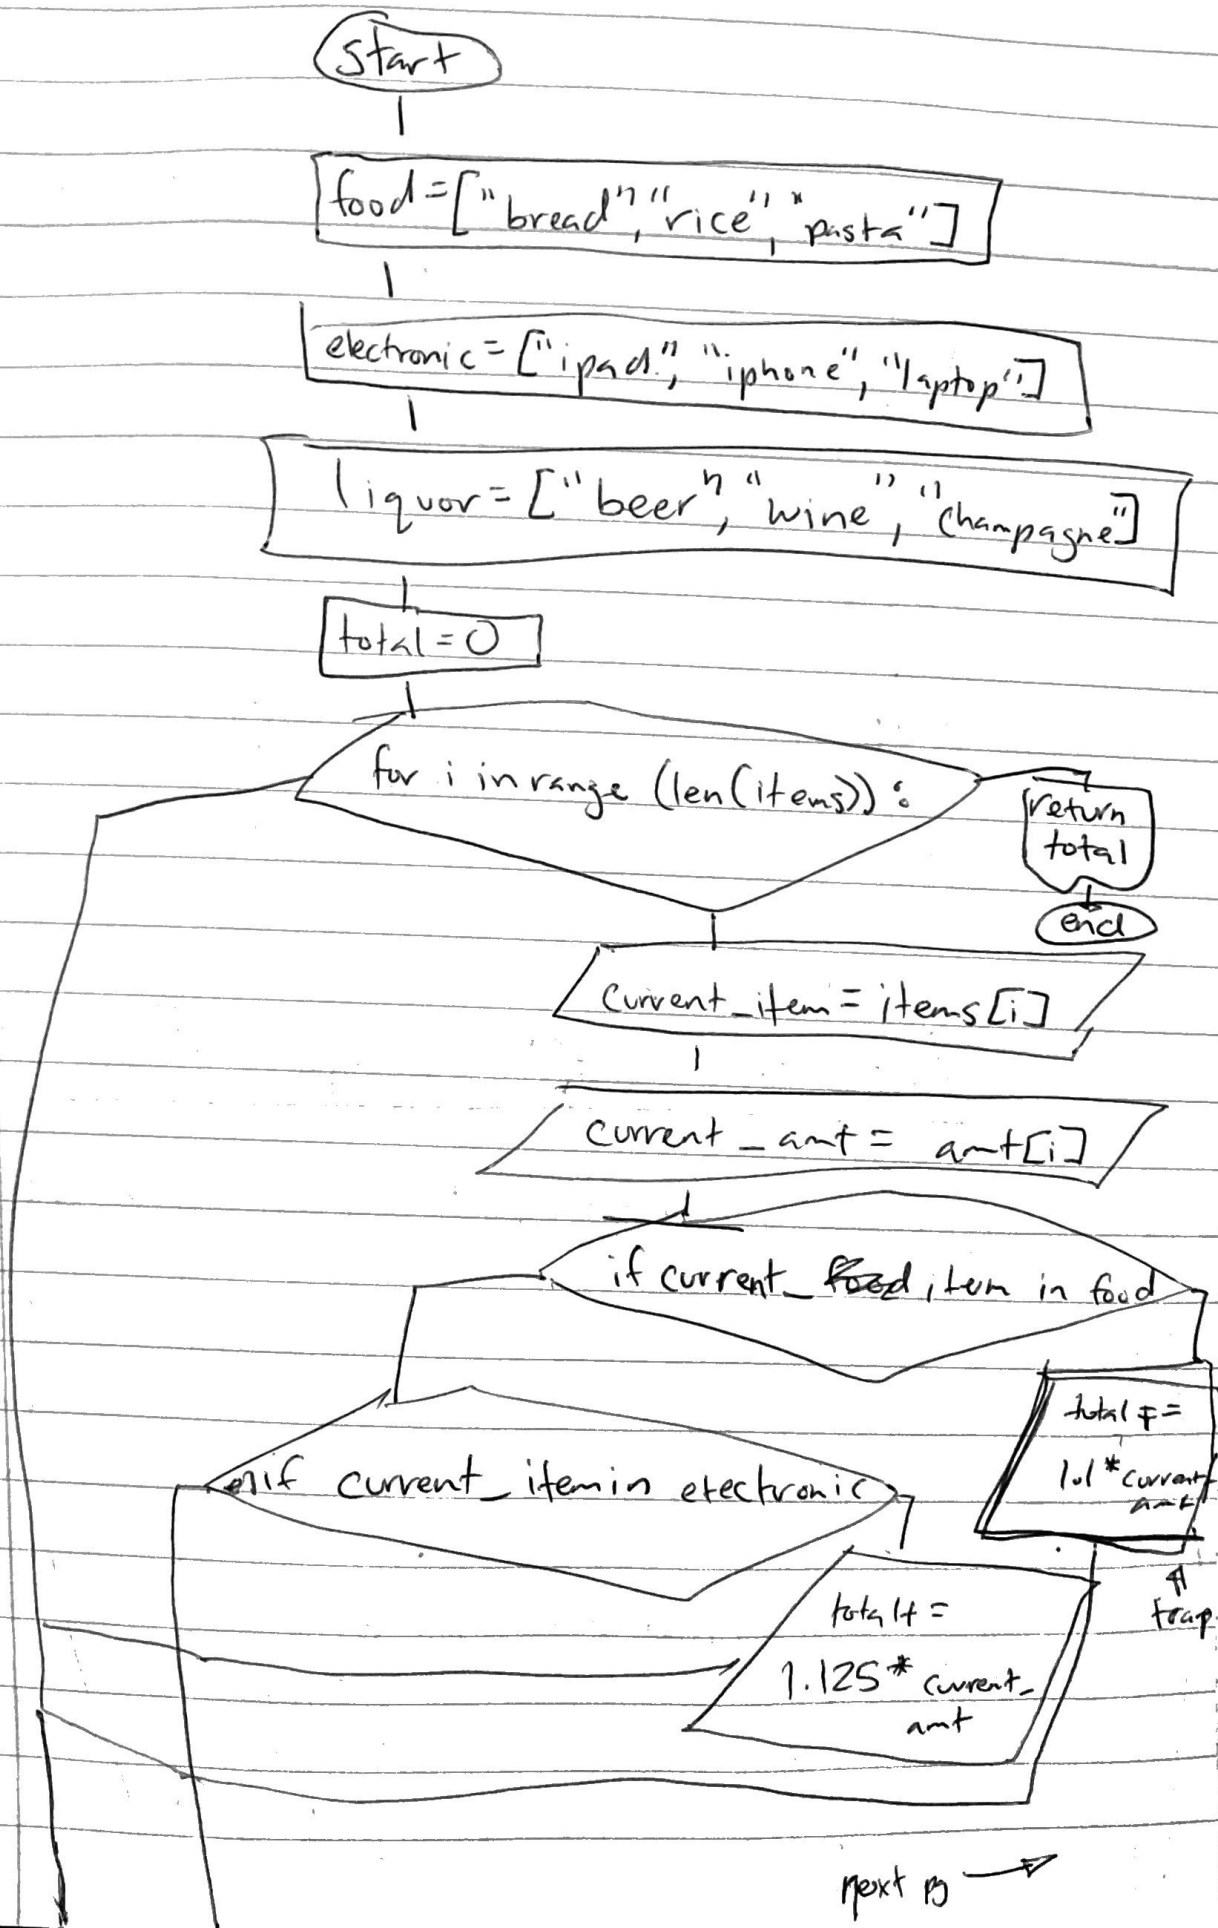 start
food=["bread","rice","pasta"]
electronic=["ipad","iphone","laptop"]
liquor=["beer","wine","champagne"]
total=0
for i in range (len(items)):
return
total
end
current_item=items[i]
current_amt= amt[i]
if current_ item in food
total +=
1.1*current
amt
elif current_item in electronic
total+=
1.125* current_
amt
trap
next